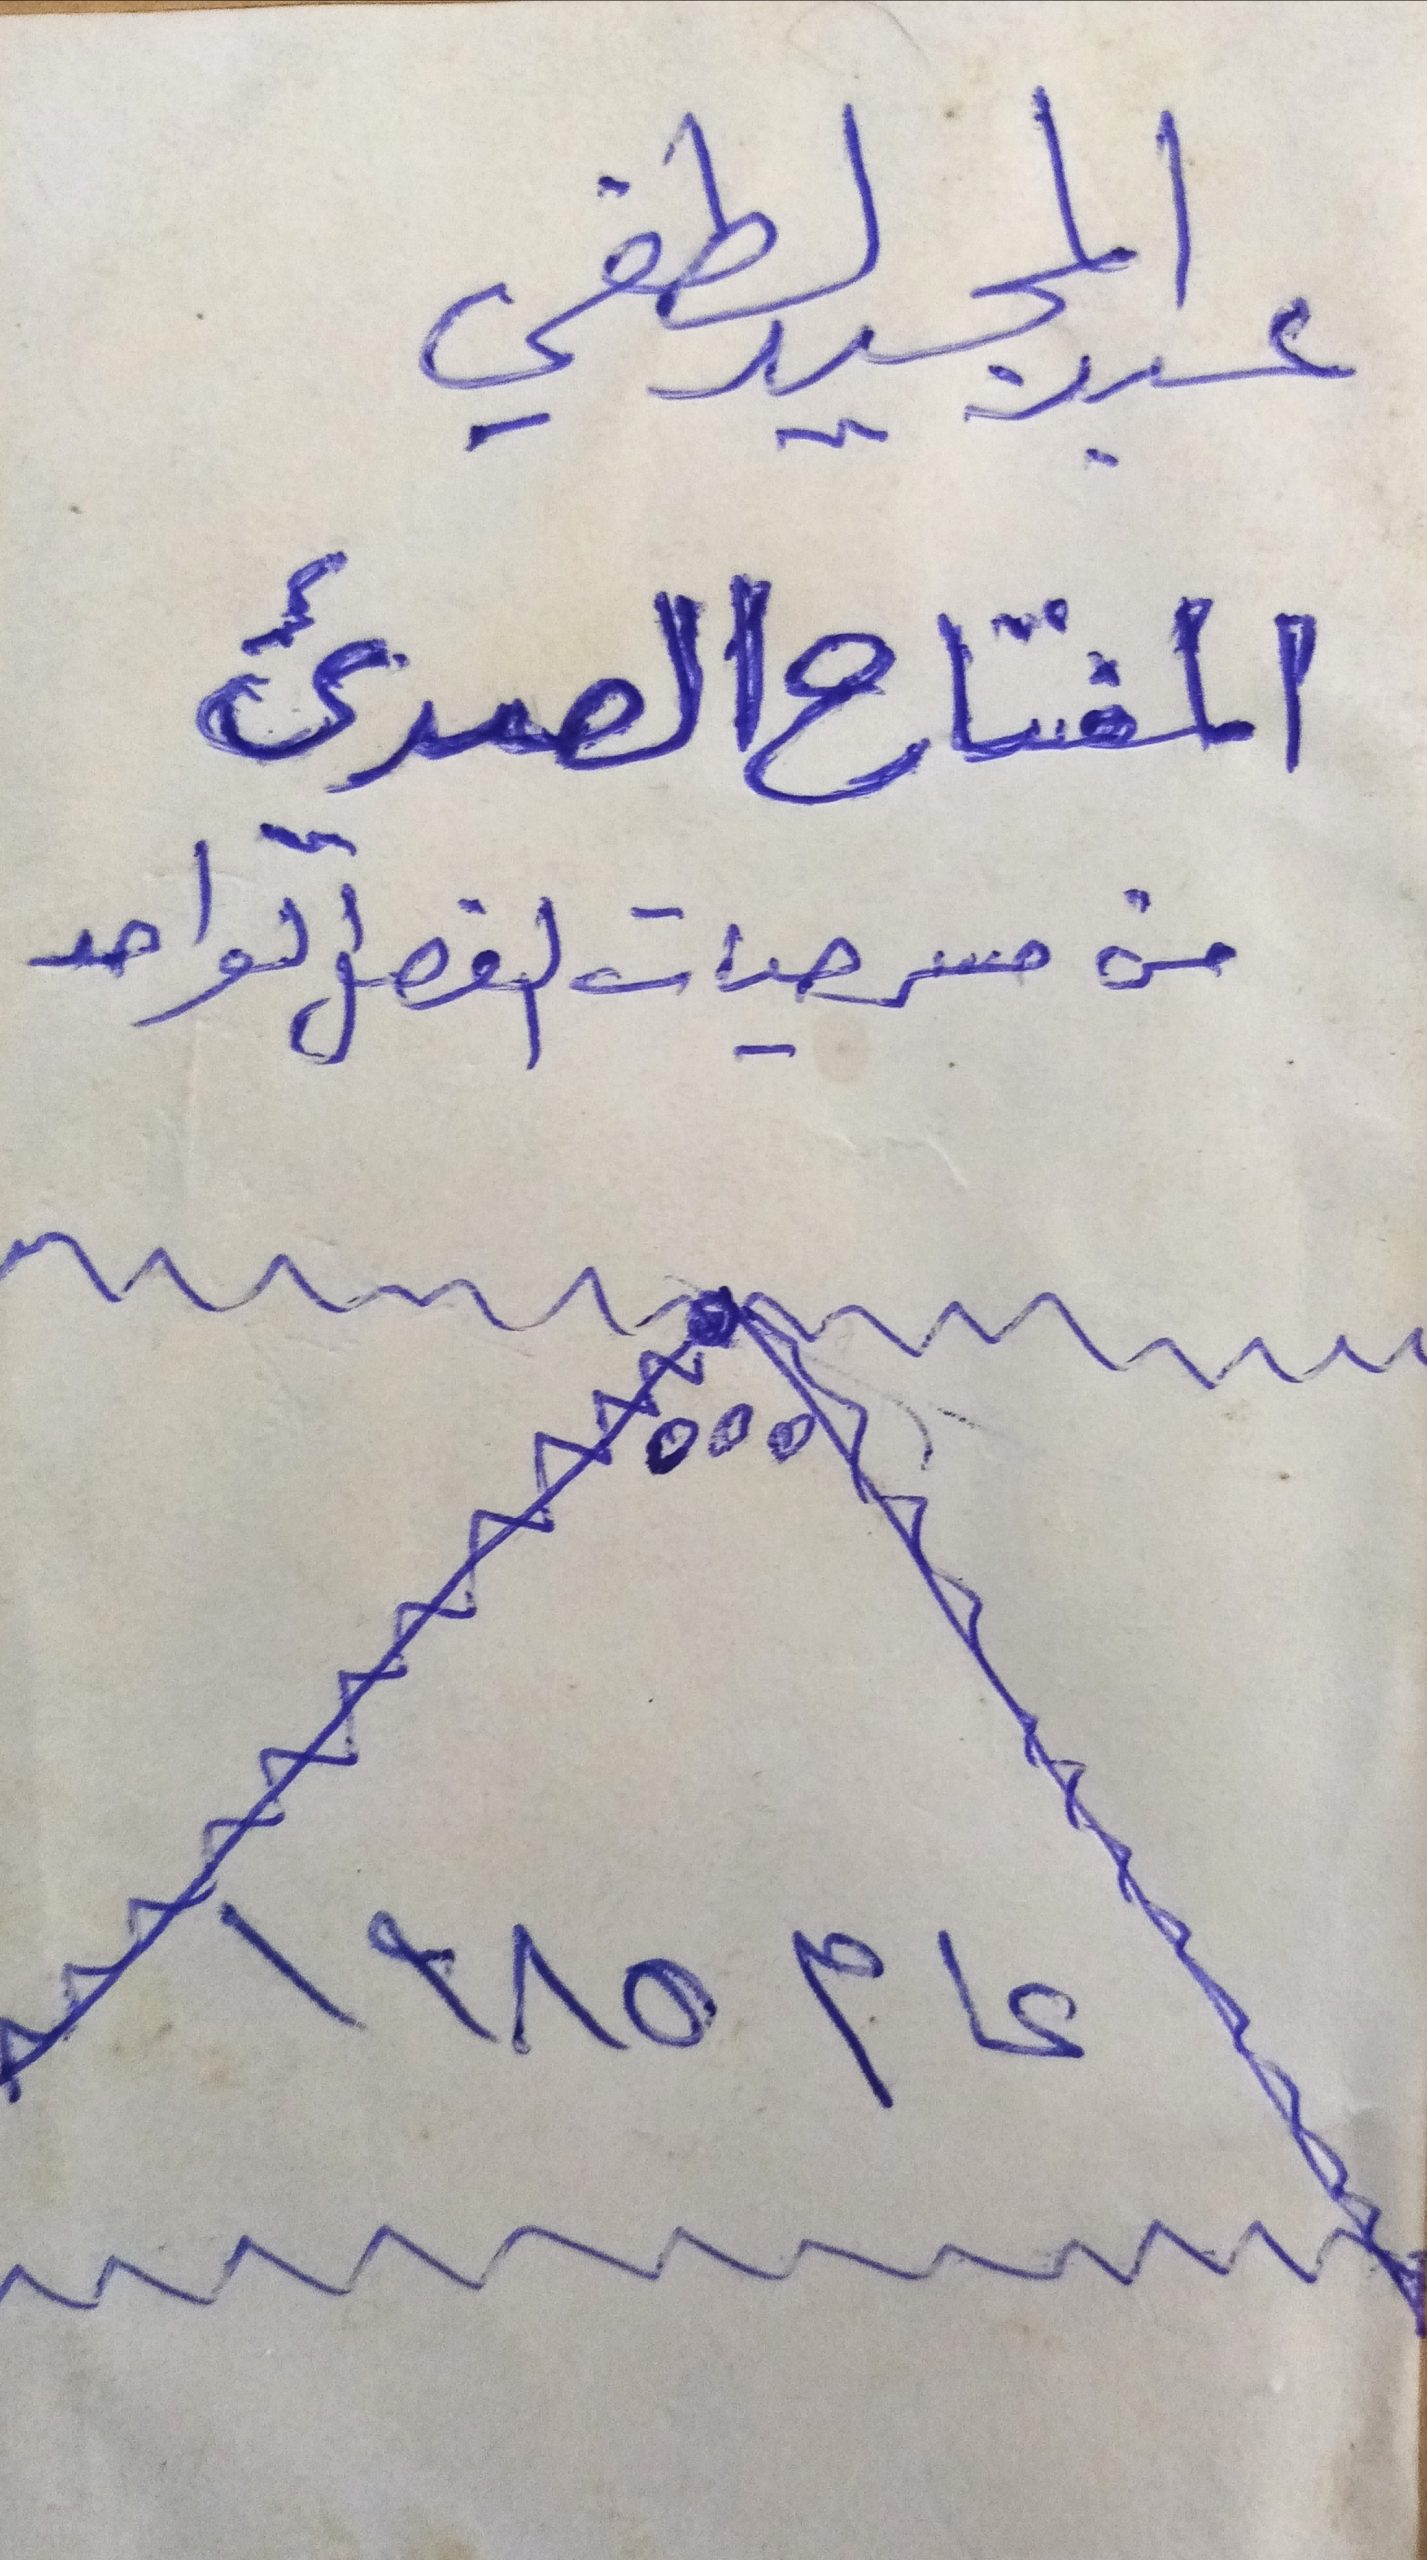 عبد المجيد لطفي
المفتاح الصدئ
من مسرحيات الفصل الواحد
عام ١٩٨٥